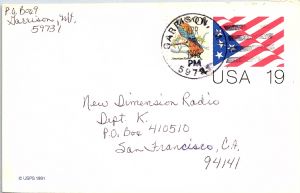 P.O. Box 9
Garrison, Mt.
59731
GARRISON
PM
597
USA 19
New Dimension Radio
Dept. K.
P.O. Box 410510
San Francisco, CA.
94141
© USPS 1991